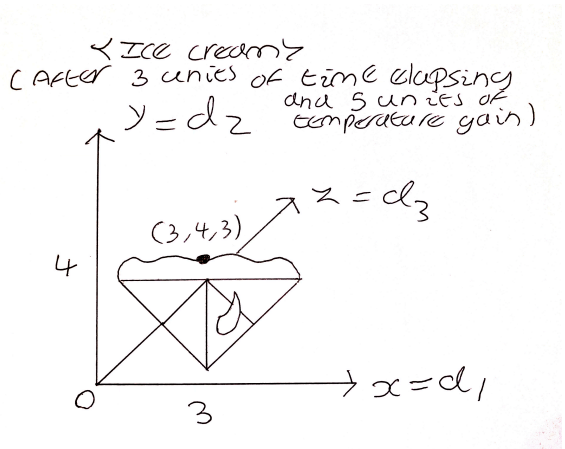 <Ice cream>
(After 3 units of time elapsing
and 5 units of
temperature gain)
y = d2
z = d3
(3,4,3)
4
0
3
x = d1